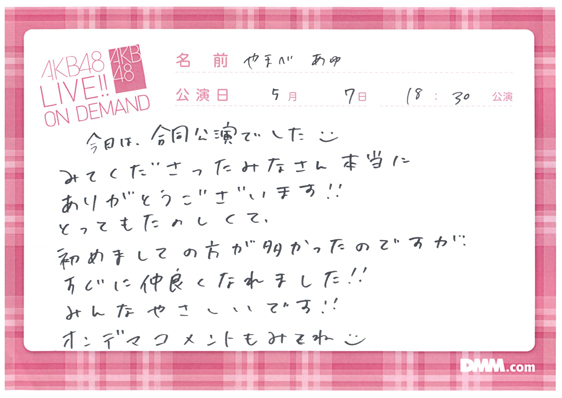 AKB48
LIVE!!
ON DEMAND
AKB
48
名前 やまべ あゆ
公演日 5月 7日 18:30 公演
今日は、合同公演でした
みてくださったみなさん本当に
ありがとうございます!!
とってもたのしくて、
初めましての方が多かったのですが
すぐに仲良くなれました!!
みんなやさしいです!!
オンデマコメントもみてね
DMM.com